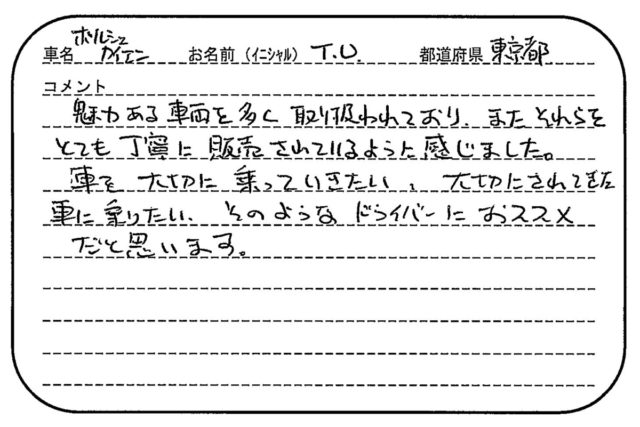 車名 ポルシェ カイエン お名前(イニシャル) T.U. 都道府県 東京都
コメント
魅力ある車両を多く取り扱われており、またそれらを
とても丁寧に販売されているように感じました。
車を大切に乗っていきたい、大切にされてきた
車に乗りたい、そのようなドライバーにおススメ
だと思います。